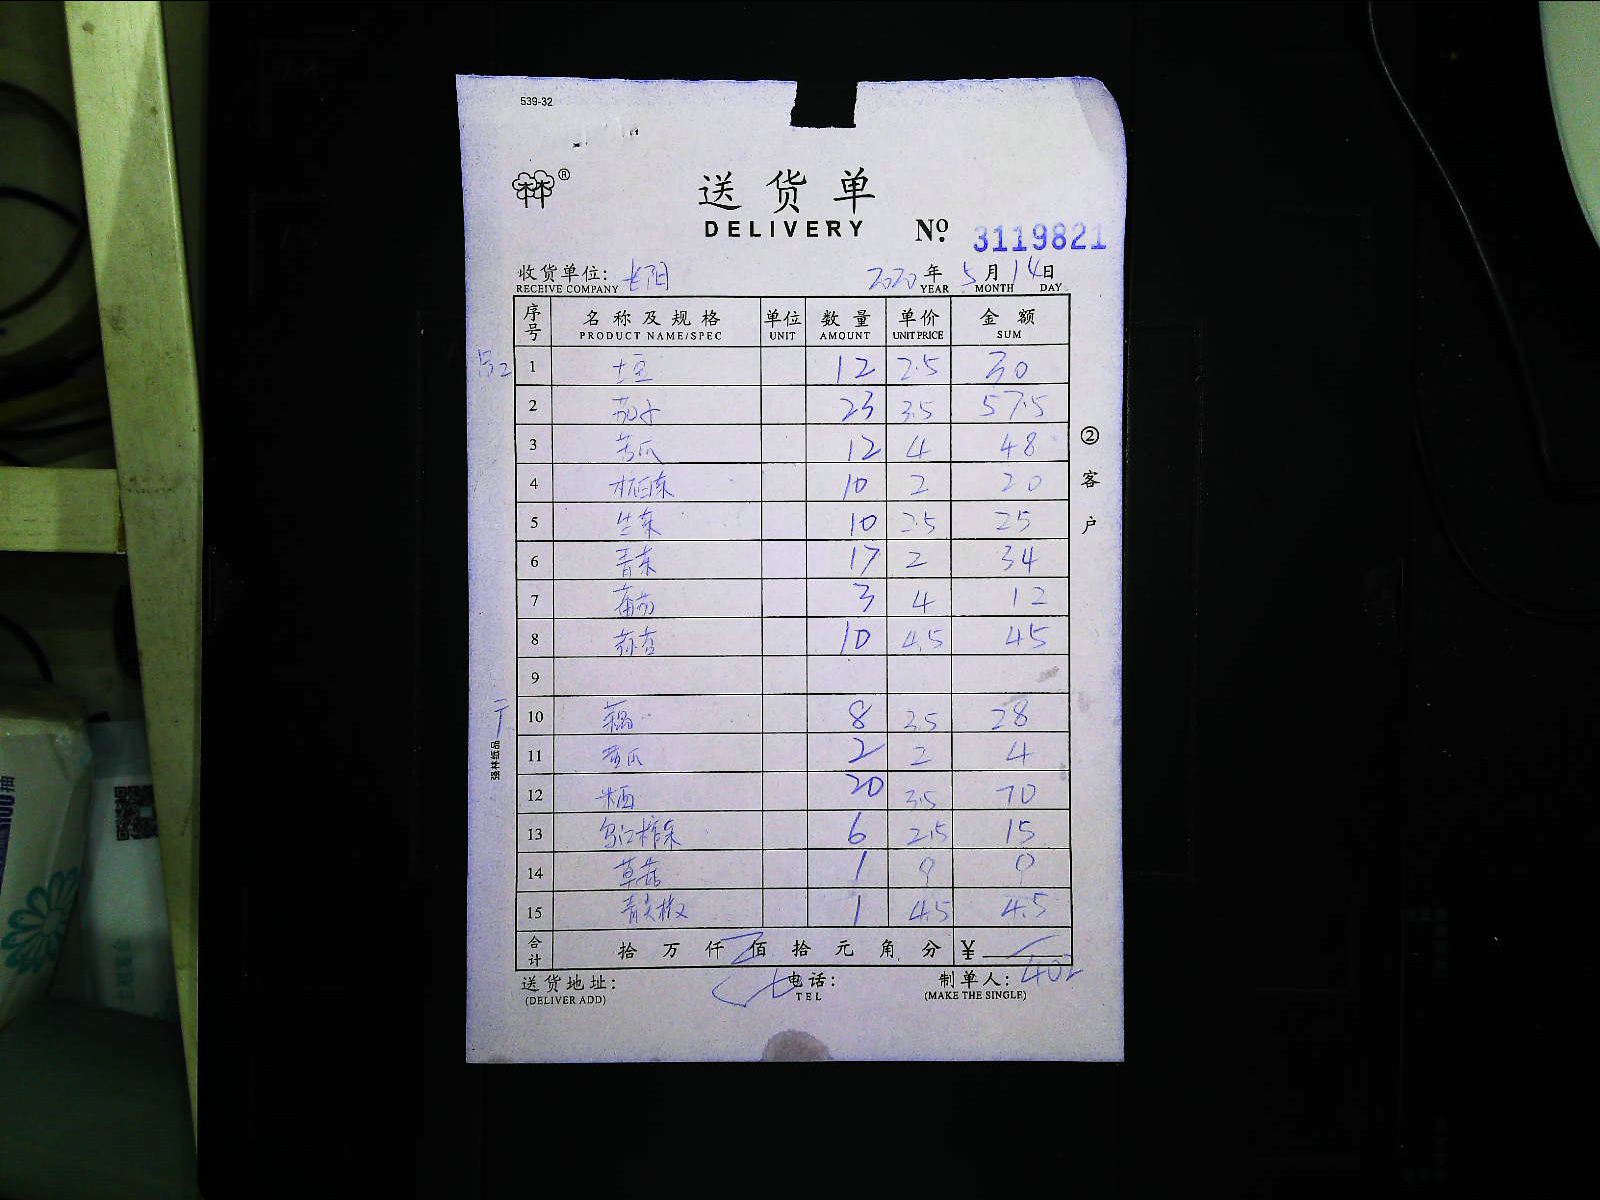 539-32
林林®
送货单
DELIVERY
№ 3119821
收货单位: 长阳 2020年5月14日
RECEIVE COMPANY YEAR MONTH DAY
序号 名称及规格 单位 数量 单价 金额
PRODUCT NAME/SPEC UNIT AMOUNT UNIT PRICE SUM
1 土豆 12 2.5 30
2 茄子 23 3.5 57.5
3 苦瓜 12 4 48
4 10 2 20
5 生菜 10 2.5 25
6 青菜 17 2 34
7 番茄 3 4 12
8 10 4.5 45
9
10 藕 8 3.5 28
11 黄瓜 2 2 4
12 20 3.5 70
13 乌江榨菜 6 2.5 15
14 草菇 1 9 9
15 青尖椒 1 4.5 4.5
合计 拾 万 仟 佰 拾 元 角 分 ¥ 402
送货地址: 电话: 制单人:
(DELIVER ADD) TEL (MAKE THE SINGLE)
②客户
强林纸品
100抽